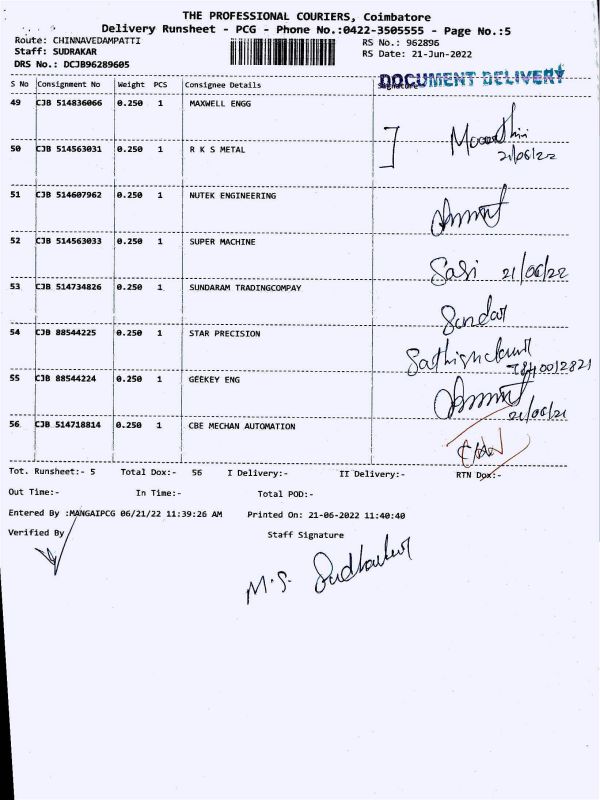 THE PROFESSIONAL COURIERS, Coimbatore
Delivery Runsheet - PCG - Phone No.:0422-3505555 - Page No.:5
Route: CHINNAVEDAMPATTI RS No.: 962896
Staff: SUDRAKAR RS Date: 21-Jun-2022
DRS No.: DCJB96289605
DOCUMENT DELIVERY
S No Consignment No Weight PCS Consignee Details Signature
49 CJB 514836066 0.250 1 MAXWELL ENGG
50 CJB 514563031 0.250 1 R K S METAL
21/06/22
51 CJB 514607962 0.250 1 NUTEK ENGINEERING
52 CJB 514563033 0.250 1 SUPER MACHINE
Sasi 21/06/22
53 CJB 514734826 0.250 1 SUNDARAM TRADINGCOMPAY
Sundar
54 CJB 88544225 0.250 1 STAR PRECISION
55 CJB 88544224 0.250 1 GEEKEY ENG
56 CJB 514718814 0.250 1 CBE MECHAN AUTOMATION
Tot. Runsheet:- 5 Total Dox:- 56 I Delivery:- II Delivery:- RTN Dox:-
Out Time:- In Time:- Total POD:-
Entered By :MANGAIPCG 06/21/22 11:39:26 AM Printed On: 21-06-2022 11:40:40
Verified By Staff Signature
M.S. Sudhakar